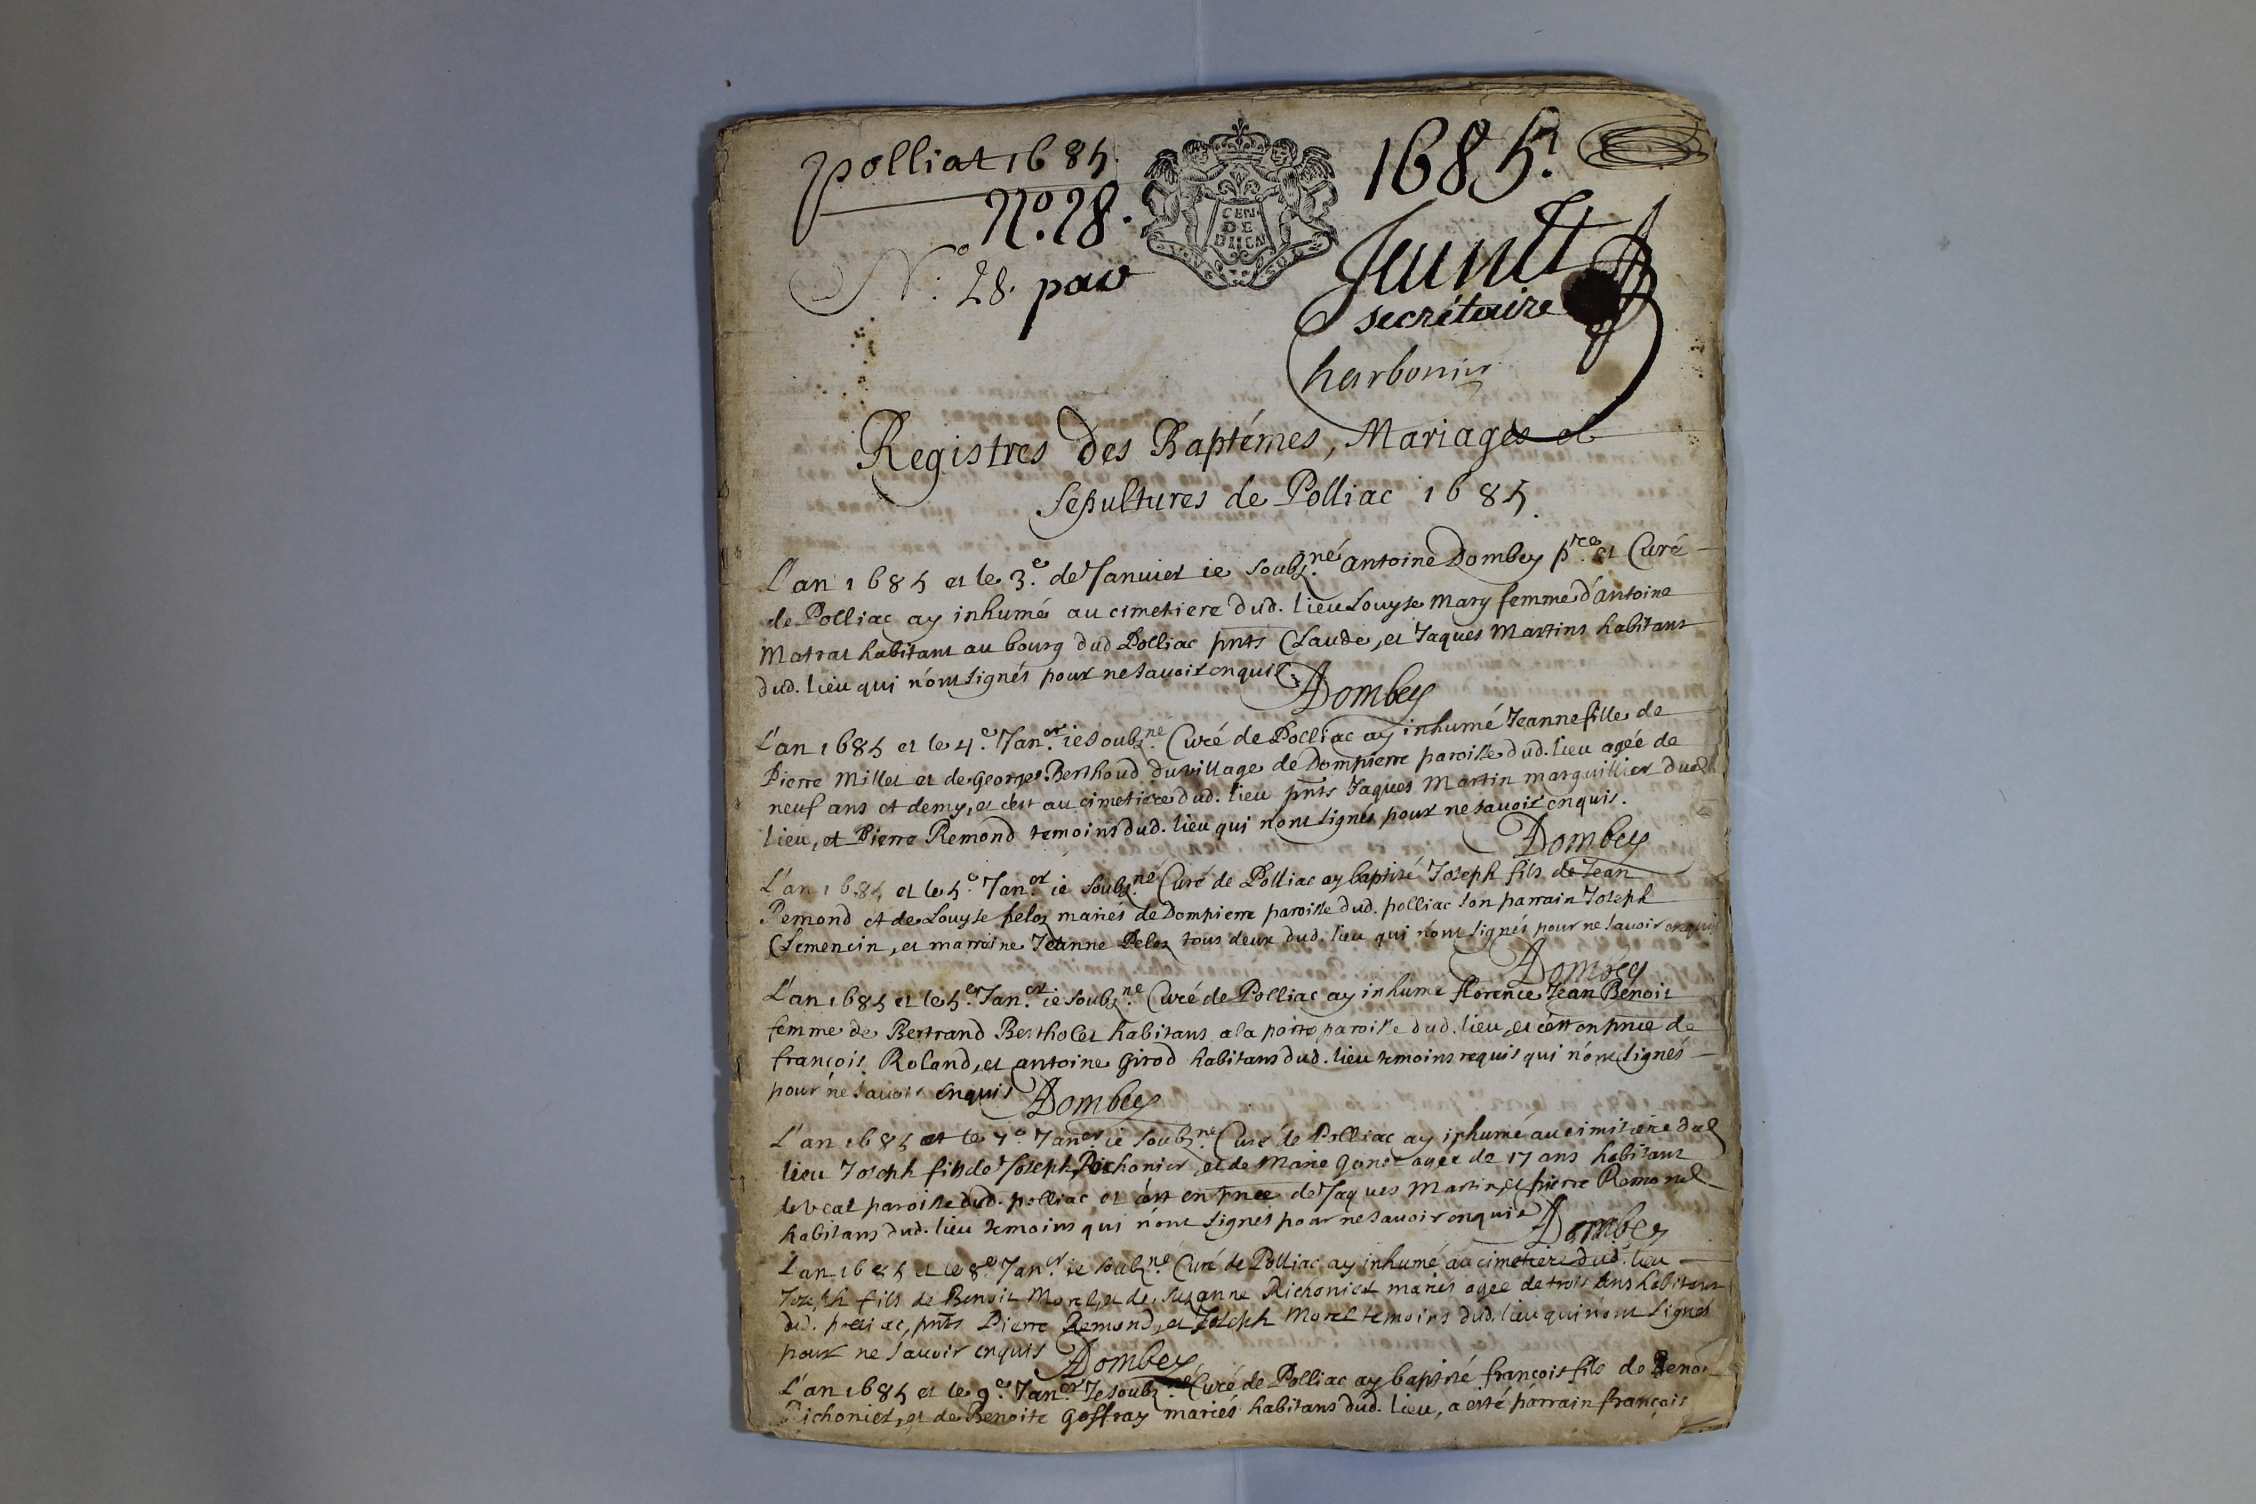 Polliat 1685.
N.o 28.
N.o 28. pao
CEN
DE
1685.
secrétaire
Registres des Baptémes, Mariages et
Sepultures de Polliac 1685.
L'an 1685 et le 3.e de Januier ie soubz.né Antoine Dombey p.re et Curé
de Polliac ay inhumé au cimetiere dud. lieu Louyse Mary femme d'Antoine
Matrat habitant au bourg dud Polliac pnts Claude, et Jaques Martins habitans
dud. lieu qui n'ont signés pour ne sauoir enquis. ADombey
L'an 1685 et le 4.e Jan.er ie soubz.né Curé de Polliac ay inhumé Jeanne fille de
Pierre Millet et de George Berthoud du village de Dompierre paroisse dud. lieu agée de
neuf ans et demy, et c'est au cimetiere dud. lieu pnts Jaques Martin marguillier dud
lieu, et Pierre Remond temoins dud. lieu qui n'ont signés pour ne sauoir enquis.
ADombey
L'an 1685 et le 5.e Jan.er ie soubz.né Curé de Polliac ay baptisé Joseph fils de Jean
Remond et de Louyse peloz mariés de Dompierre paroisse dud. polliac son parrain Joseph
Clemencin, et marraine Jeanne Peloz tous deux dud. lieu qui n'ont signés pour ne sauoir enquis
ADombey
L'an 1685 et le 5.e Jan.er ie soubz.né Curé de Polliac ay inhumé florence Jean Benoit
femme de Bertrand Bertholet habitans a la poirre paroisse dud. lieu, et c'est en pnce de
françois Roland, et antoine Girod habitans dud. lieu temoins requis qui n'ont signés
pour ne sauoir enquis ADombey
L'an 1685 et le 7.e Jan.er ie soubz.né Curé de Polliac ay inhumé au cimitiere dud
lieu Joseph fils de Joseph Pichonier, et de Marie agée de 17 ans habitant
paroisse dud. polliac et c'est en pnce de Jaques Martin, et pierre Remond
habitans dud. lieu temoins qui n'ont signés pour ne sauoir enquis ADombey
L'an 1685 et le 8.e Jan.er ie soubz.né Curé de Polliac ay inhumé au cimetiere dud. lieu
Joseph fils de Benoit Morel, et de Suzanne Richonier mariés agée de trois ans habitans
dud. polliac, pnts Pierre Remond, et Joseph Morel temoins dud. lieu qui n'ont signés
pour ne sauoir enquis ADombey
L'an 1685 et le 9.e Jan.er Je soubz.né Curé de Polliac ay baptisé françois fils de Benoit
Pichonier, et de Benoite Goffray mariés habitans dud. lieu, a esté parrain françois